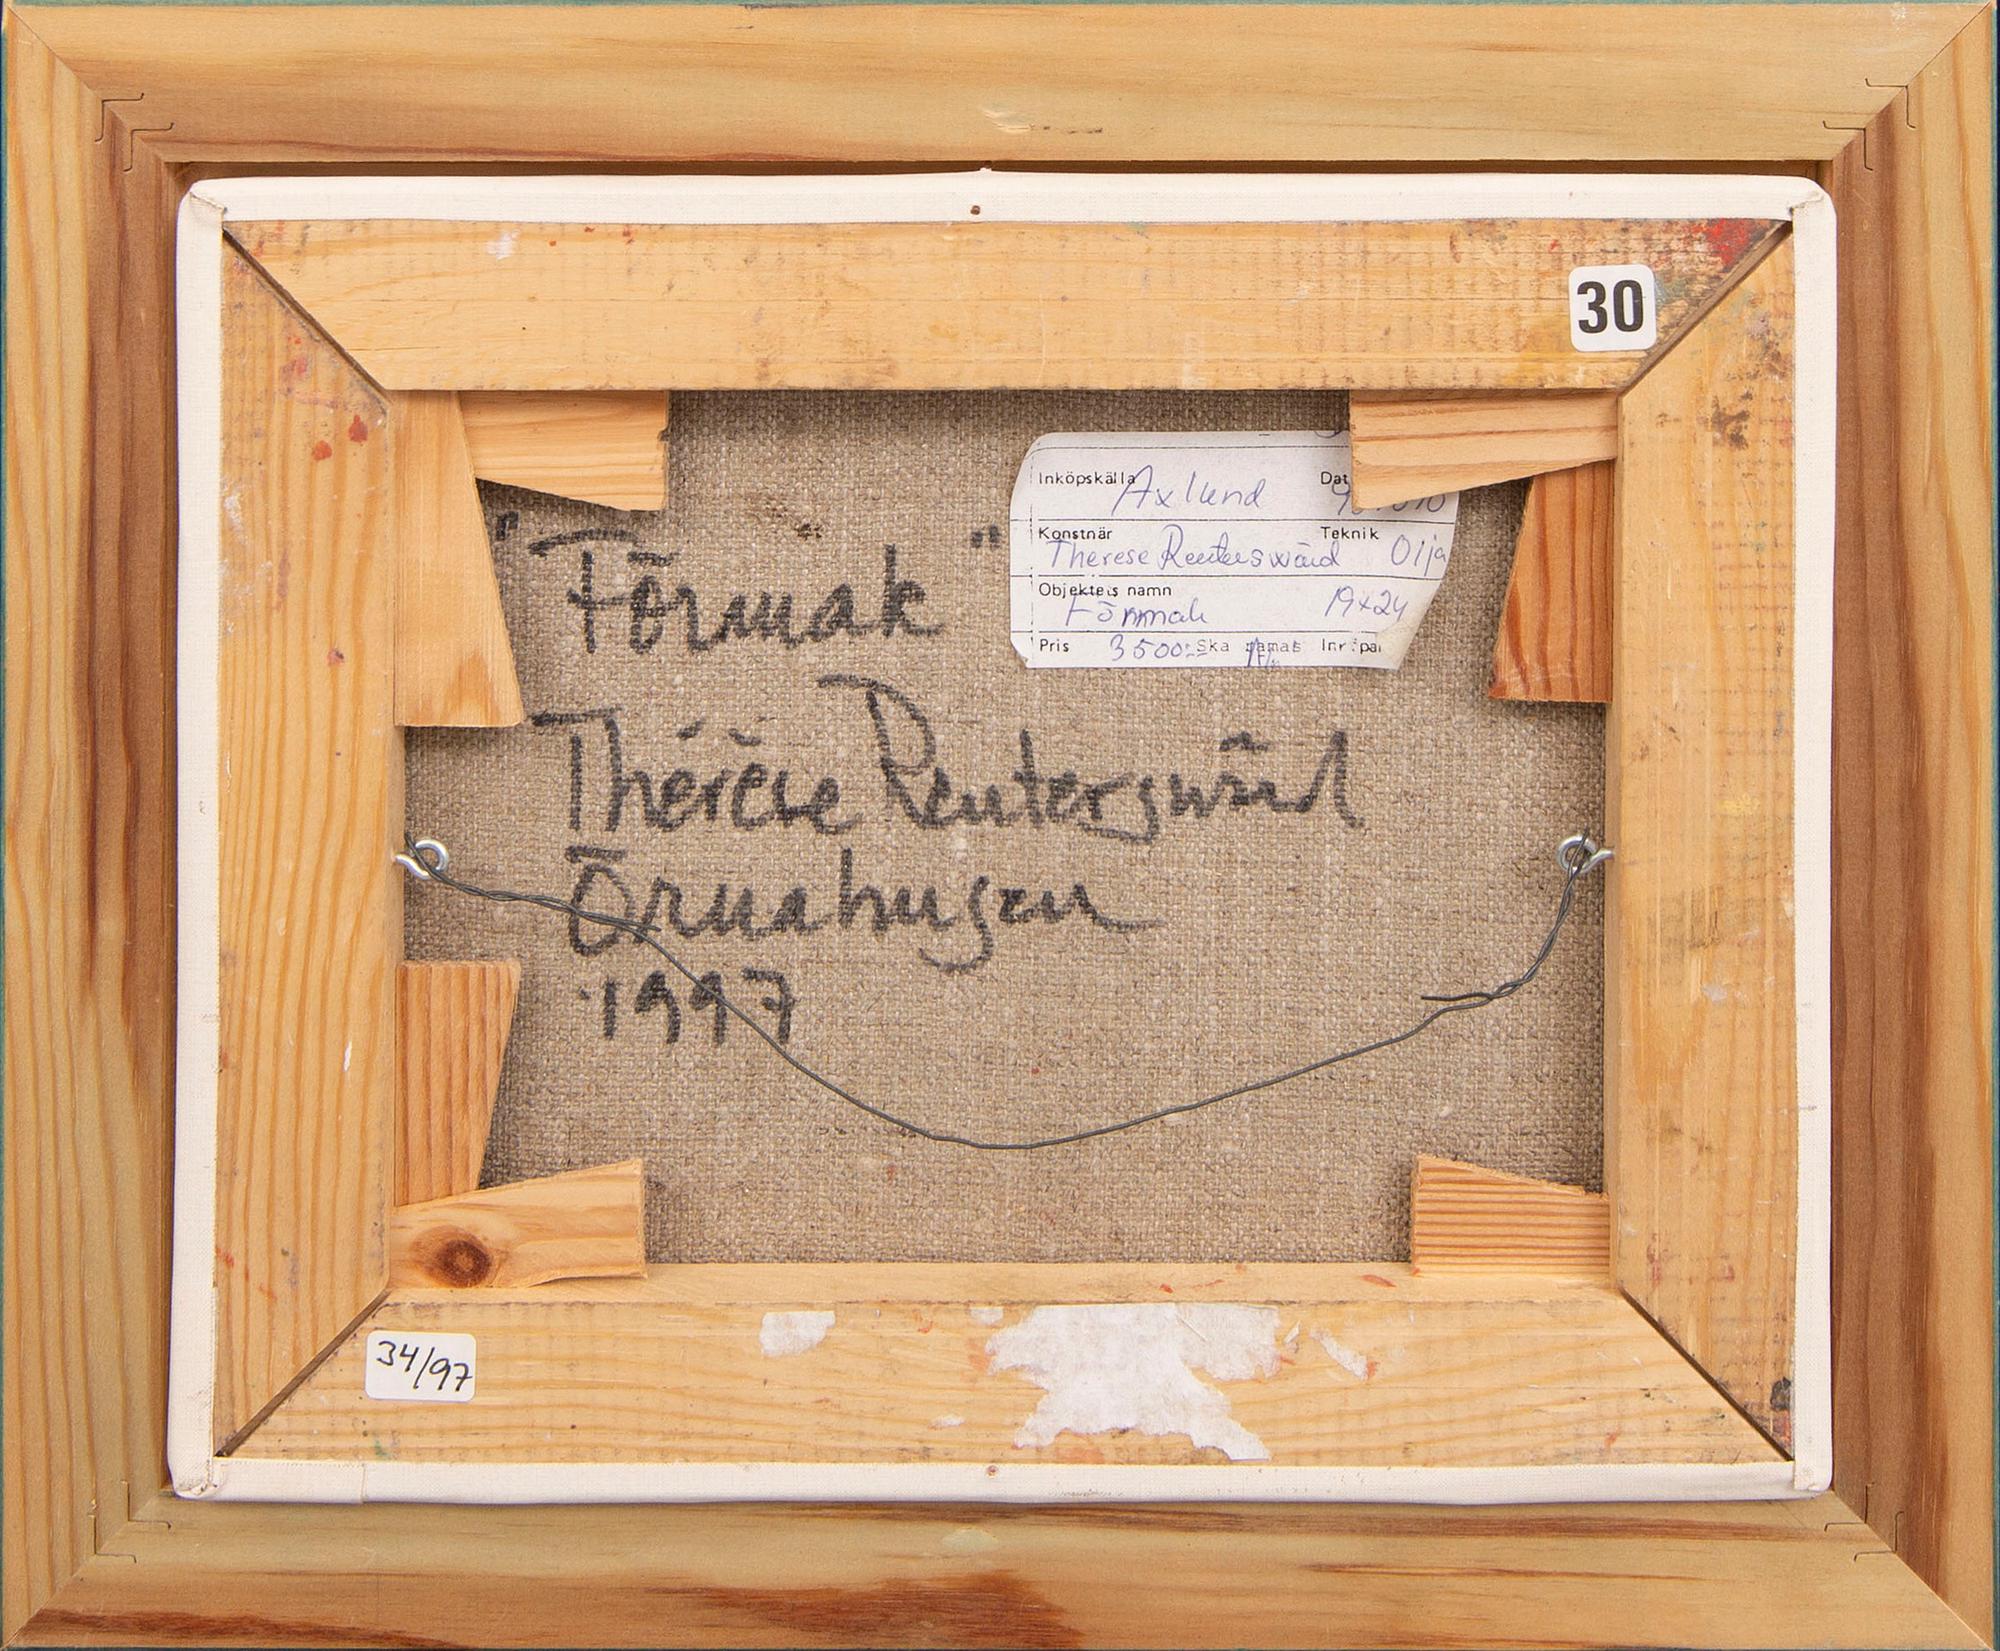 30
Inköpskälla Axlund Dat
Konstnär Teknik
Therese Reuterswärd Olja
Objektets namn
Förmak 19x24
Pris 3500:- Ska ramas
"Förmak"
Thérèse Reuterswärd
Örnahusen
1997
34/97